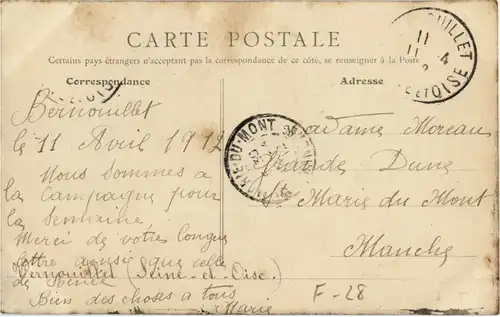 CARTE POSTALE
Certains pays étrangers n'acceptant pas la correspondance de ce côté, se renseigner à la Poste
Correspondance
Adresse
Bernouillet
le 11 Avril 1912
Nous sommes à
la Campagne pour
la semaine
Merci de votre longue
lettre ainsi que celle
de Renée
Vernouillet (Seine-et-Oise.)
Bien des choses à tous
Marie
Madame Moreau
Grande Dune
Ste Marie du Mont
Manche
F-28
OUILLET
11
11 4
ET OISE
MARIE-DU-MONT